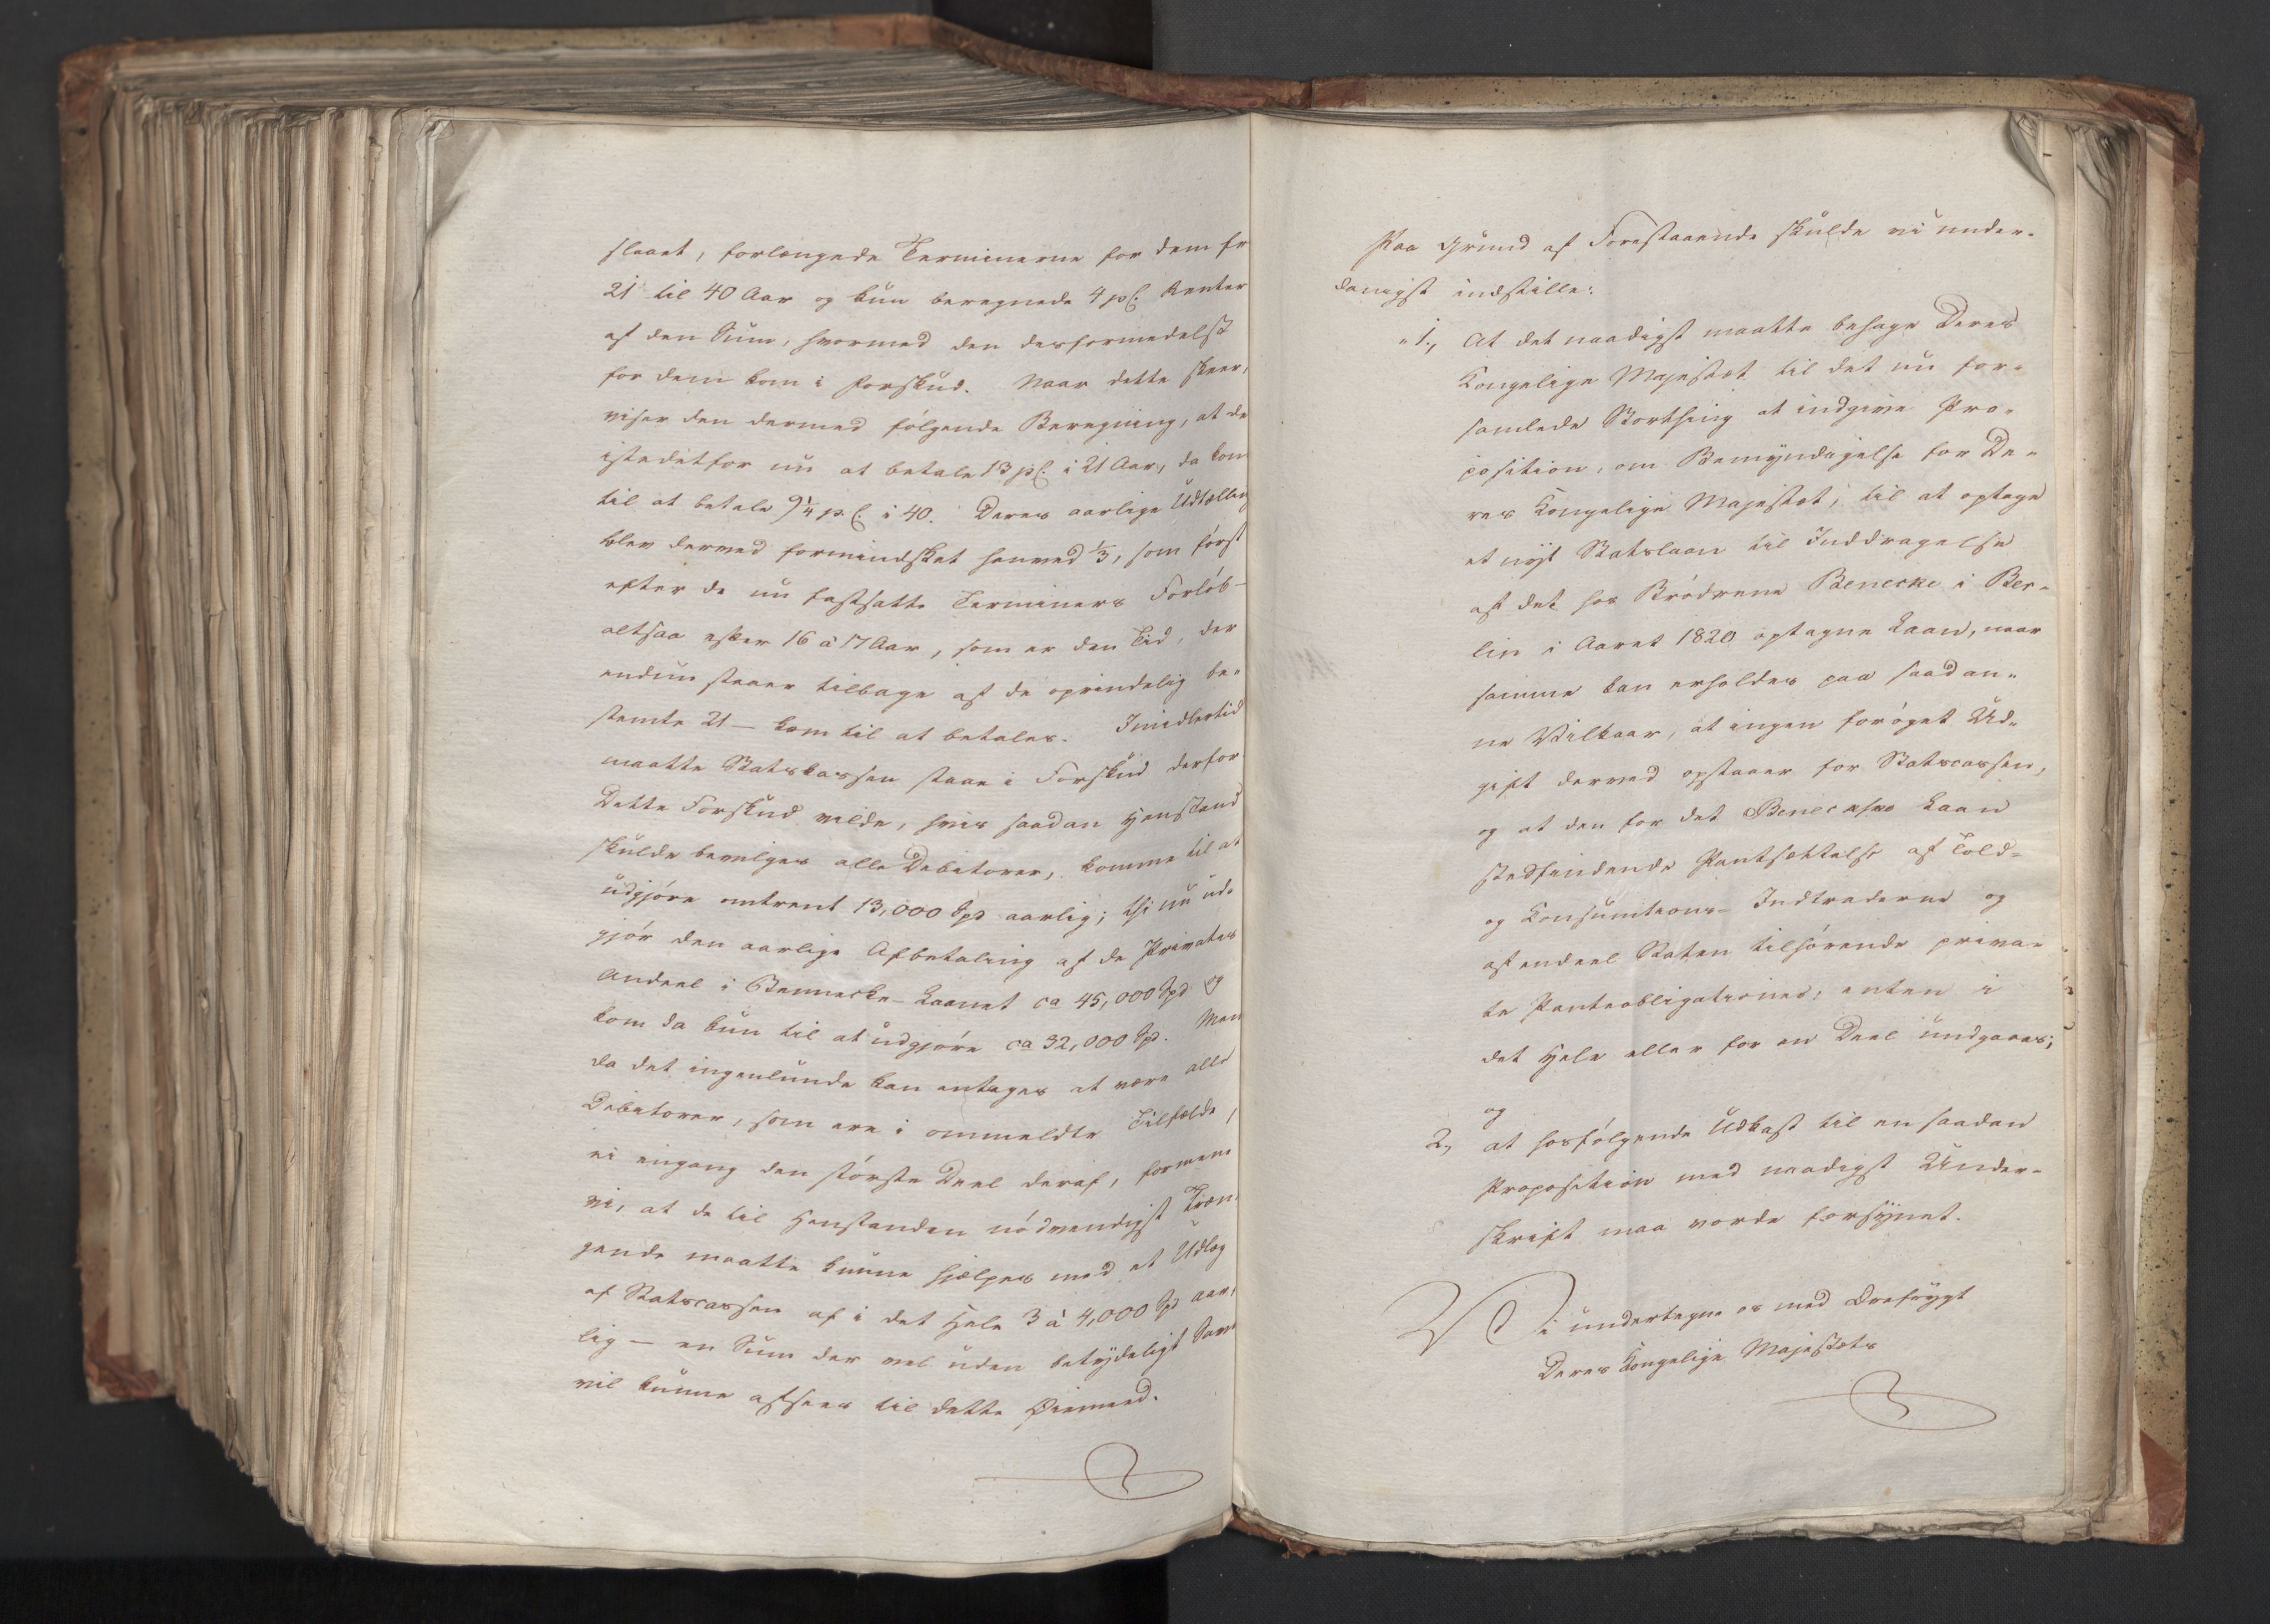 slaaet, forlængede Terminerne for dem fr
21 til 40 Aar og kun beregnede 4 pC. Renter
af den Sum, hvormed den desformedelst
for dem kom i Forskud. Naar dette skeer,
viser den dermed følgende Beregning, at de
istedetfor nu at betale 13 pC. i 21 Aar, da kom
til at betale 9¼ pC. i 40. Deres aarlige Udtælling
blev derved formindsket henved ⅓, som først
efter de nu fastsatte Terminers Forløb-
altsaa efter 16 à 17 Aar, som er den Tid, der
endnu staaer tilbage af de oprindelig be-
stemte 21 - kom til at betales. Imidlertid
maatte Statskassen staae i Forskud derfor
Dette Forskud vilde, hvis saadan Henstand
skulde bevilges alle Debitorer, komme til at
udgjøre omtrent 13,000 Spd aarlig; thi nu ud-
gjør den aarlige Afbetaling af de Privates
Andeel i Bennecke-Laanet ca 45,000 Spd og
kom da kun til at udgjøre ca 32,000 Spd. Men
da det ingenlunde kan antages at være alle
Debitorer, som ere i ommeldte Tilfælde,
ei engang den største Deel deraf, formene
vi, at de til Henstanden nødvendigst Træn-
gende maatte kunne hjælpes med et Udlæg
af Statscassen af i det Hele 3 à 4,000 Spd aar-
lig - en Sum der vel uden betydeligt Savn
vil kunne afsees til dette Øiemeed.
Paa Grund af Forestaaende skulde vi under-
danigst indstille:
"1., At det naadigst maatte behage Deres
Kongelige Majestæt til det nu for-
samlede Storthing at indgive Pro-
position, om Bemyndigelse for De-
res Kongelige Majestæt, til at optage
et nyt Statslaan til Inddragelse
af det hos Brødrene Benecke i Ber-
lin i Aaret 1820 optagne Laan, naar
samme kan erholdes paa saadan-
ne Vilkaar, at ingen forøget Ud-
gift derved opstaaer for Statscassen,
og at den for det Beneckske Laan
stedfindende Pantsættelse af Told-
og Konsumtions- Indtraderne og
af endeel Staten tilhørende priva-
te Panteobligationer, enten i
det Hele eller for en Deel undgaaes;
og
2, at hosfølgende Udkast til en saadan
Proposition med naadigst Under-
skrift maa vorde forsynet.
Vi undertegne os med Ærefrygt
Deres Kongelige Majestæts